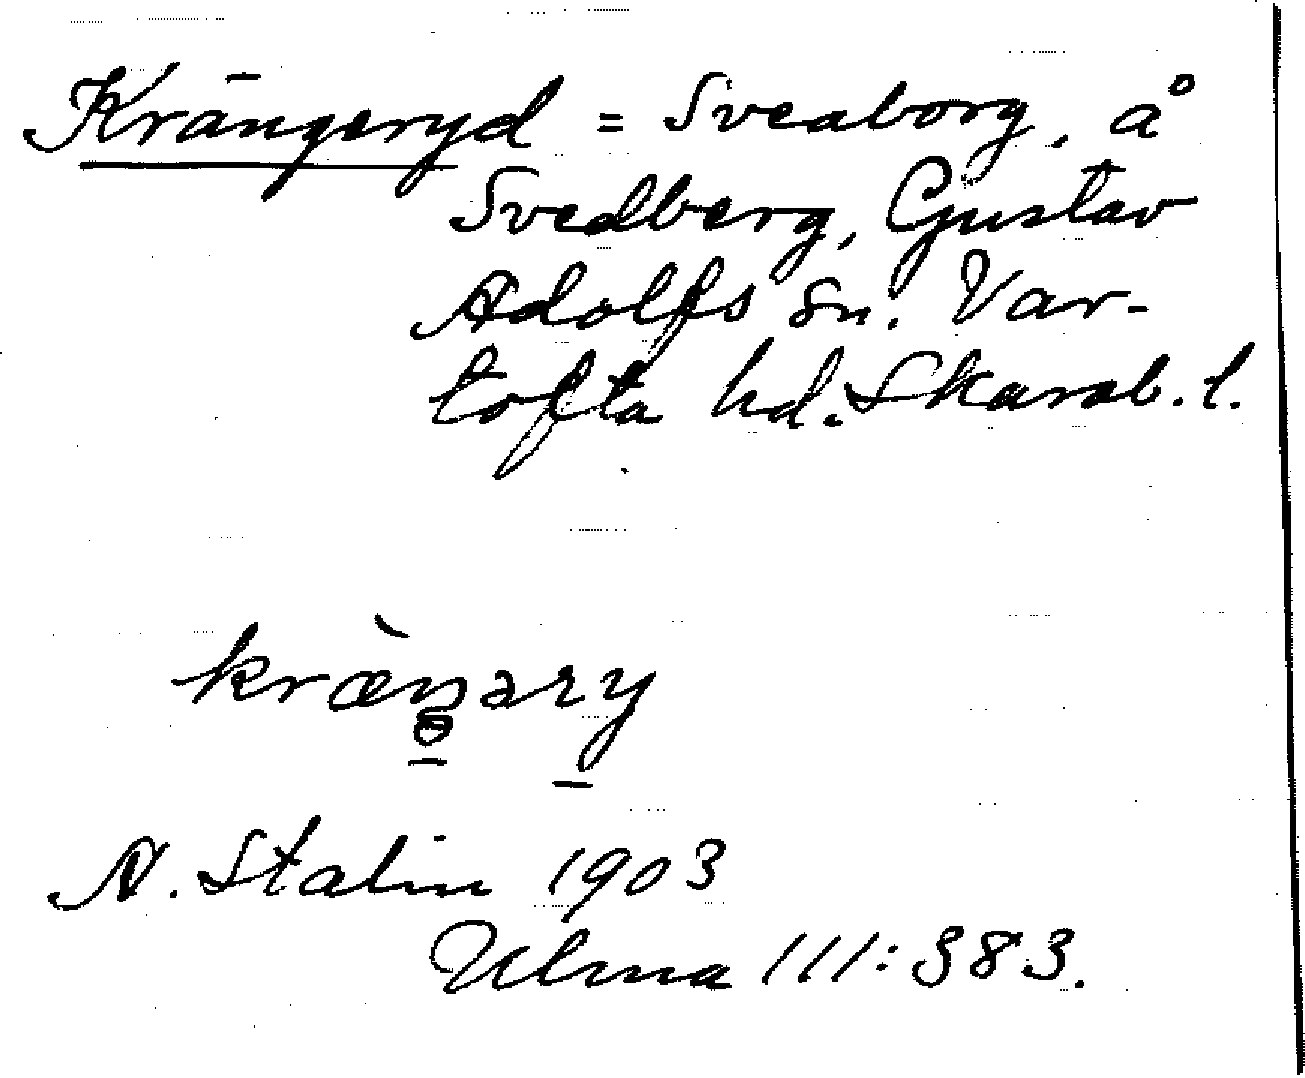 Krängeryd = Sveaborg, å
Svedberg, Gustav
Adolfs sn. Var-
tofta hd. Skarab. l.
A. Stalin 1903
Ulma 111:383.